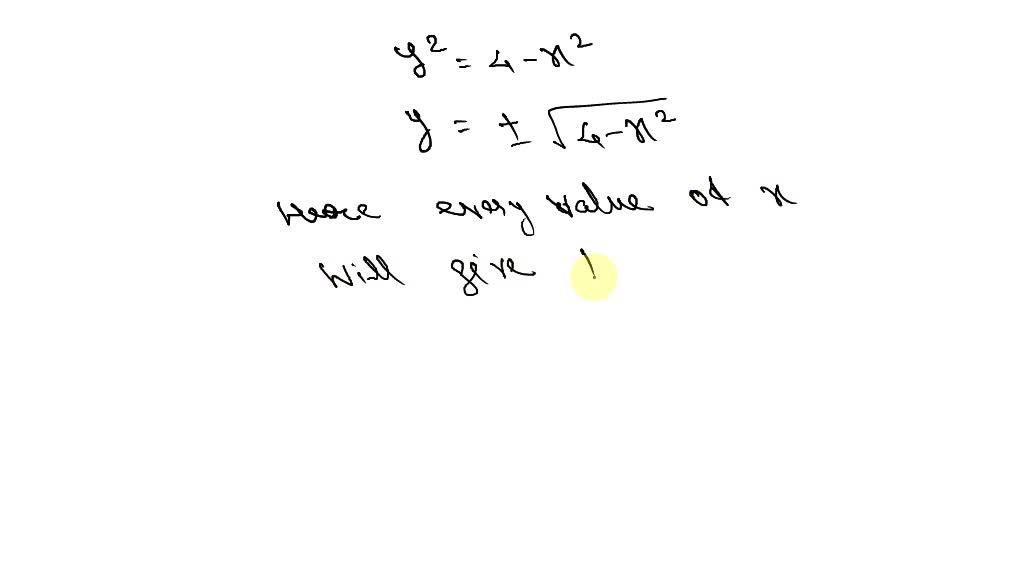 y² = 4-x²
y = ± √4-x²
Hence every value of x
will give